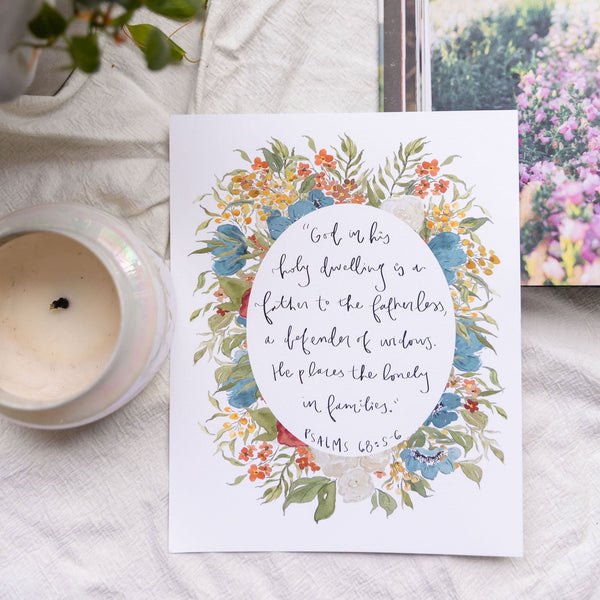 "God in his
holy dwelling is a
father to the fatherless,
a defender of widows.
He places the lonely
in families."
PSALMS 68:5-6